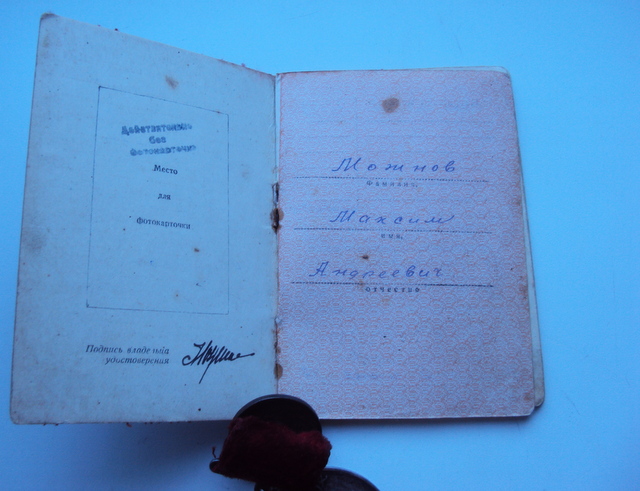 Действительно
без
фотокарточки
Место
для
фотокарточки
Подпись владельца
удостоверения
Можнов
Фамилия,
Максим
имя,
Андреевич
отчество